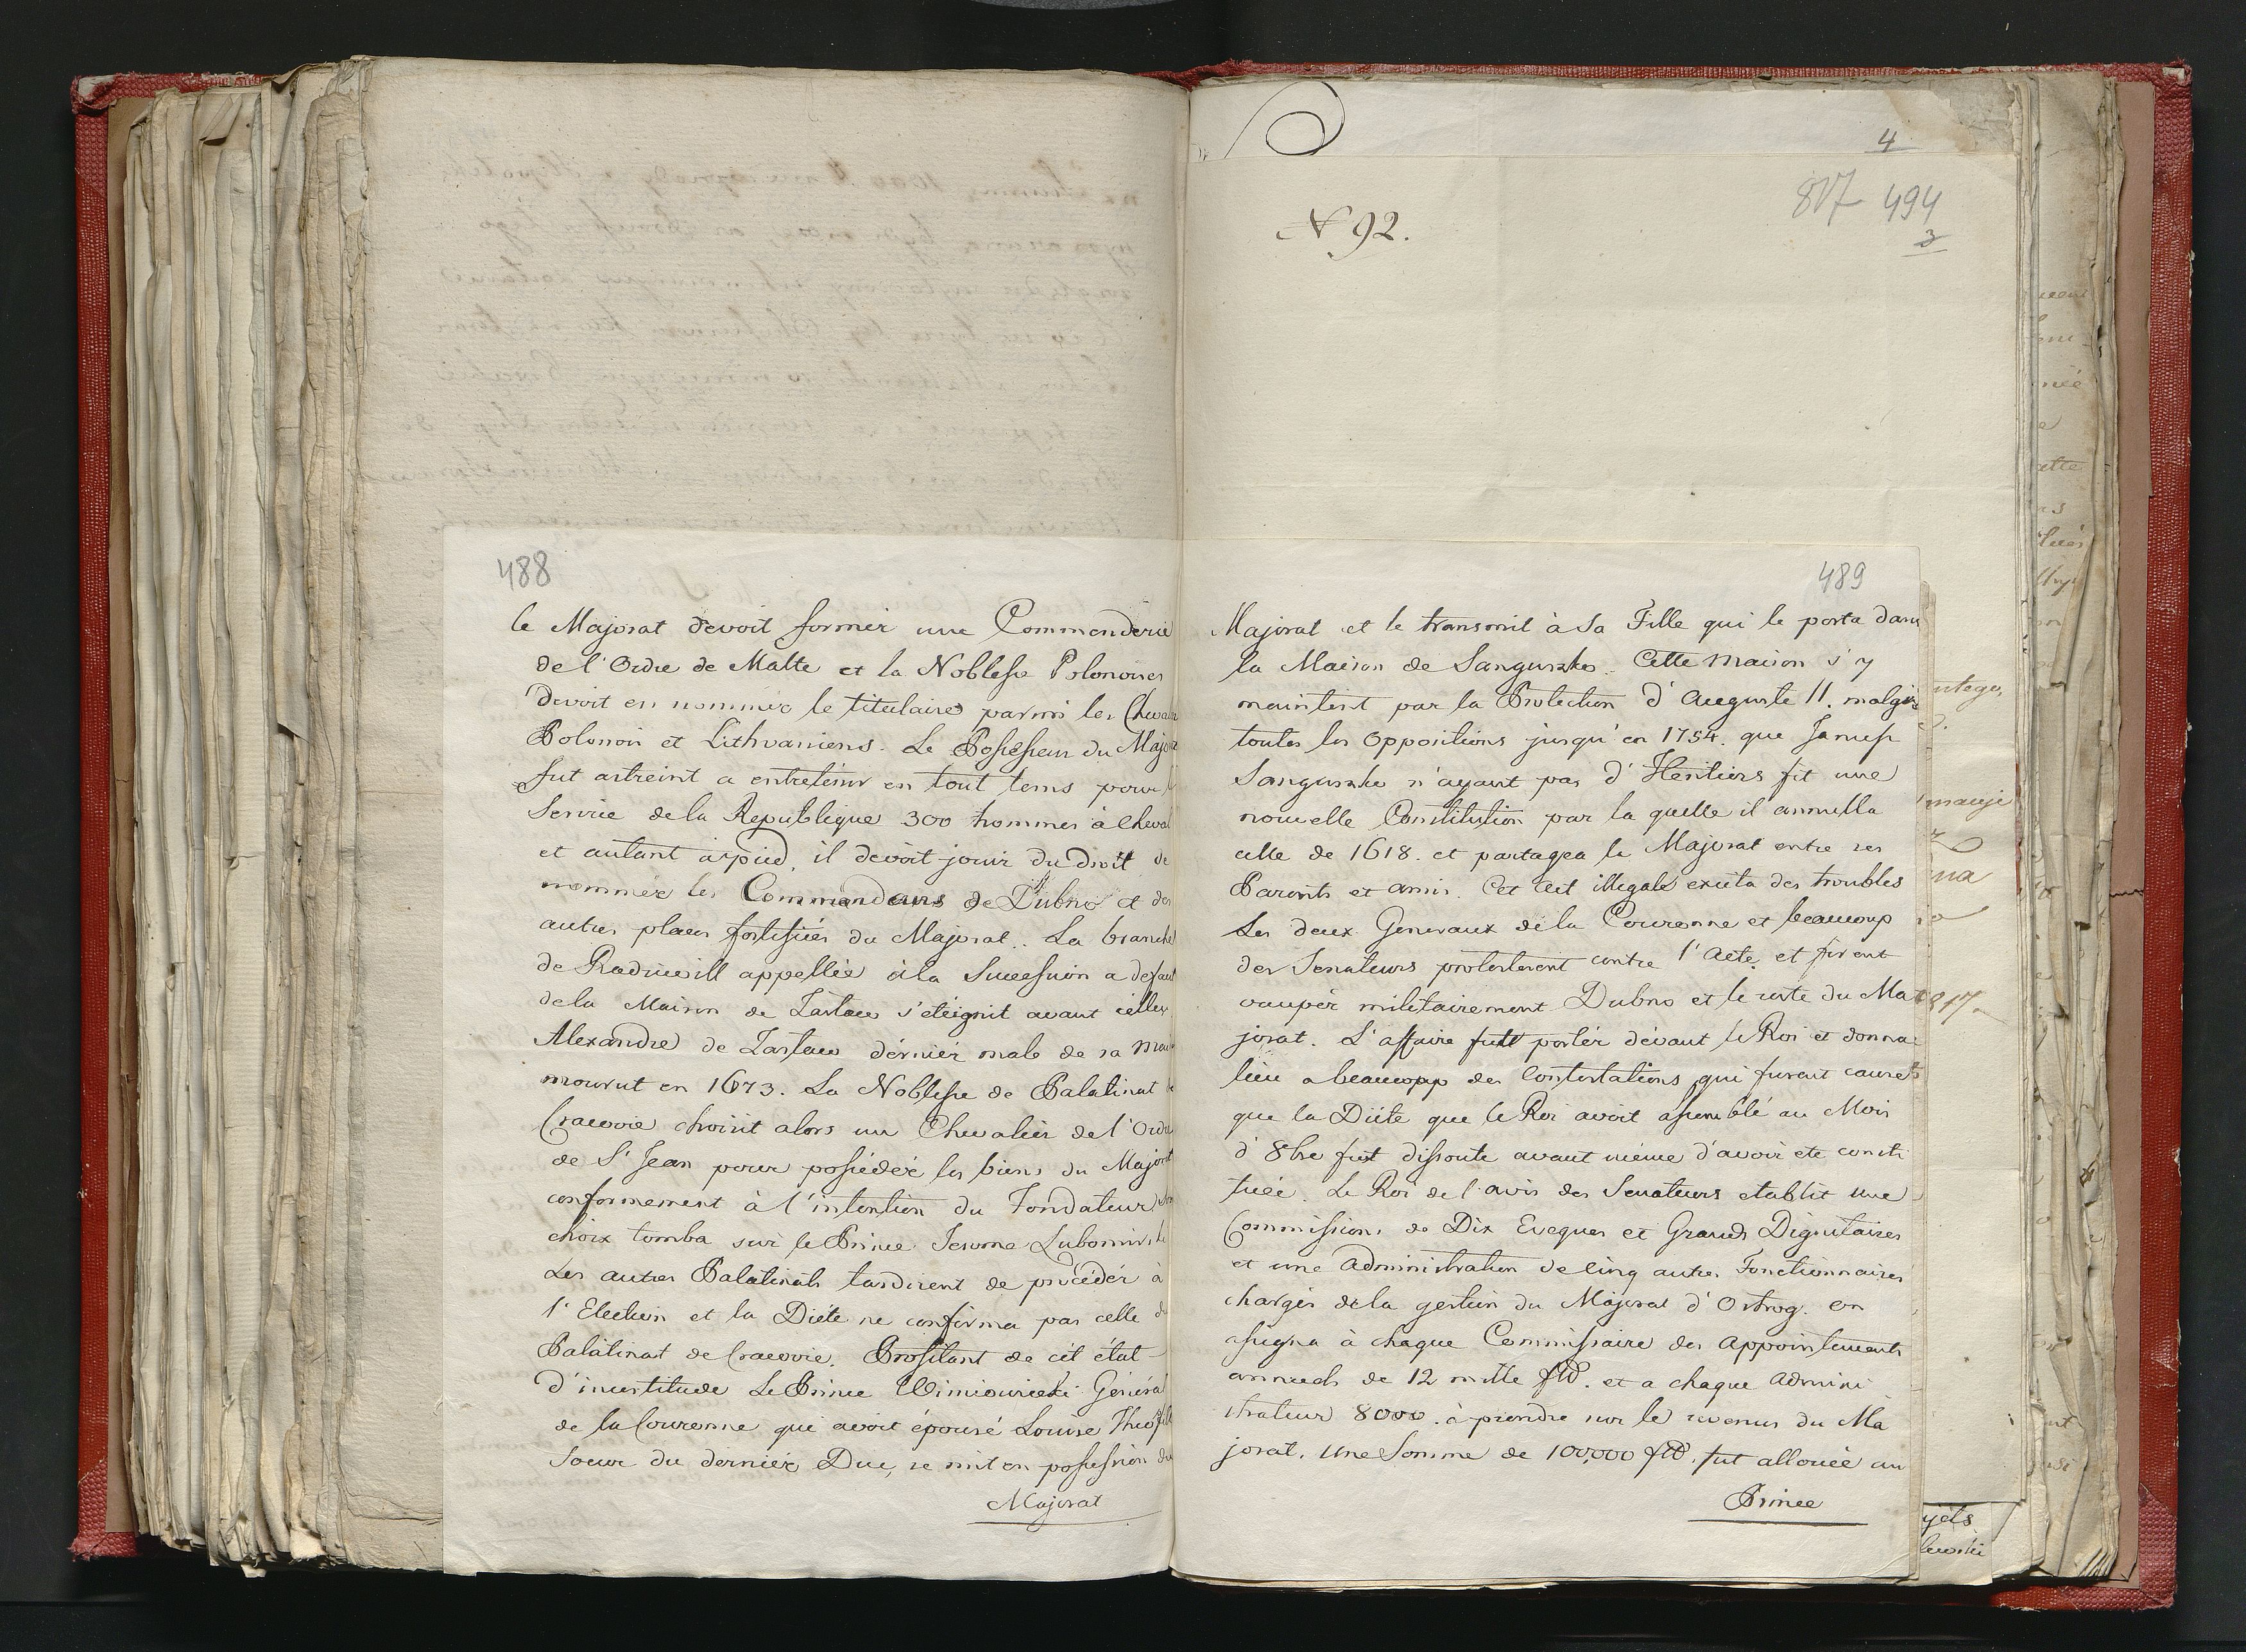 488
le Majorat devoit former une Commenderie
de l'Ordre de Malte et la Noblesse Polonoises
devoit en nommér le titulaire parmi les Cheva
Polonois et Lithvaniens. Le Possesseur du Major
fut astreint a entretenir en tout tems pour
Service de la Republique 300 hommes à cheval
et autant à pied, il devoit jouir du droit de
nommér les Commandeurs de Dubno et des
autres places fortifiées du Majorat. La branche
de Radziwill appellée à la Succession a defaut
de la Maison de Zaslaw s'éteignit avant celle
Alexandre de Zaslaw dérniér male de sa Mai
mourut en 1673. La Noblesse de Palatinat
Cracovie choisit alors un Chevalier de l'Ordre
de St Jean pour possédér les biens du Majorat
conformement à l'intention du Fondateur son
choix tomba sur le Prince Jerome Lubomirski
Les autres Palatinats tardirent de procédér à
l'Election et la Diéte ne confirma pas celle du
Palatinat de Cracovie. Profitant de cét état
d'incertitude Le Prince Wimiowiecki Général
de la Couronne qui avoit épousé Louise Theofile
Soeur du derniér Duc, se mit en possession du
Majorat
4
817 494
3
N 92.
489
Majorat et le transmit à sa Fille qui le porta dans
la Maison de Sanguszko. Cette maison s'y
maintint par la Protection d'Auguste II. malgré
toutes les oppositions jusqu'en 1754. que Janusz
Sanguszko n'ayant pas d'Heritiers fit une
nouvelle Constitution par la quelle il annulla
celle de 1618. et partagea le Majorat entre ses
Parents et amis. Cet Act illegale excita des troubles
Les deux Generaux de la Couronne et beaucoup
des Senateurs protesterent contre l'Acte et firent
occupér militairement Dubno et le reste du Ma
jorat. L'affaire fut portér dévant le Roi et donna
lieu a beaucoup des Contestations qui furent causes
que la Diéte que le Roi avoit assemblé au Mois
d'8bre fut dissoute avant même d'avoir ete consti
tuée. Le Roi de l'avis des Senateurs etablit une
Commission de Dix Eveques et Grands Dignitaires
et une Administration de cinq autres Fonctionnaires
chargés de la gestion du Majorat d'Ostrog. on
assigna à chaque Commissaire des Appointements
annuels de 12 mille fld. et a chaque Admini
strateur 8000. à prendre sur le revenus du Ma
jorat. Une Somme de 100,000 fld. fut allouée au
Prince
817